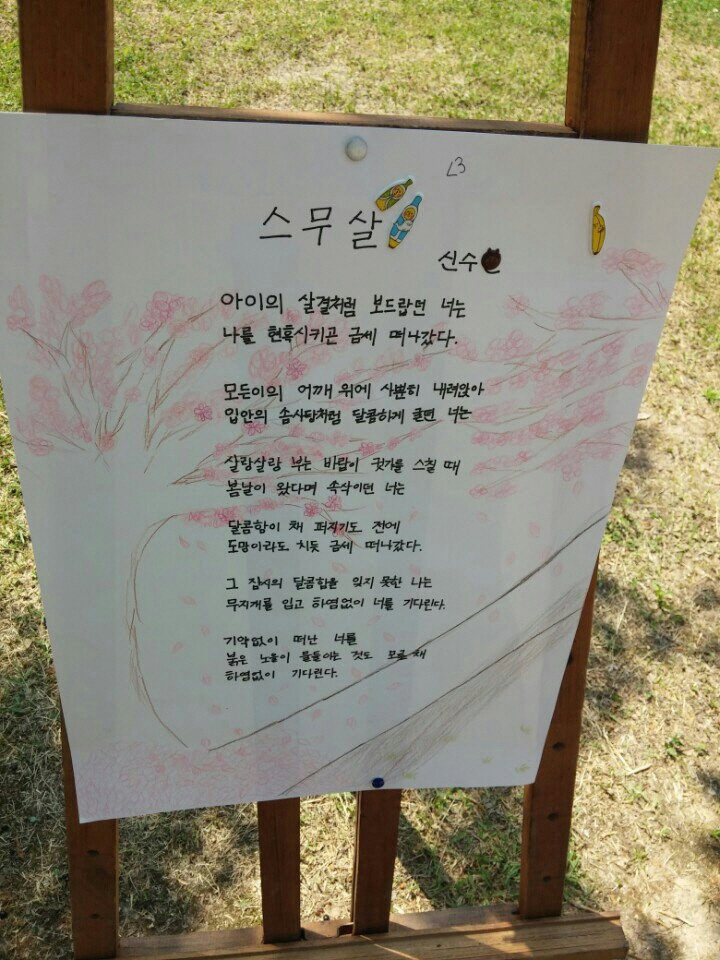 23
스무살
신수
아이의 살결처럼 보드랍던 너는
나를 현혹시키곤 금세 떠나갔다.
모든이의 어깨 위에 사뿐히 내려앉아
입안의 솜사탕처럼 달콤하게 물면 너는
살랑살랑 부는 바람이 귓가를 스칠 때
봄날이 왔다며 속삭이던 너는
달콤함이 채 퍼지기도 전에
도망이라도 치듯 금세 떠나갔다.
그 잠시의 달콤함을 잊지 못한 나는
무지개를 입고 하염없이 너를 기다린다.
기약없이 떠난 너를
붉은 노을이 물들이는 것도 모른 채
하염없이 기다린다.